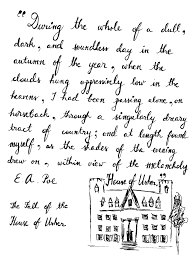 "During the whole of a dull,
dark, and soundless day in the
autumn of the year, when the
clouds hung oppressively low in the
heavens, I had been passing alone, on
horseback, through a singularly dreary
tract of country; and at length found
myself, as the shades of the evening
drew on, within view of the melancholy
House of Usher."
E. A. Poe
The Fall of the
House of Usher